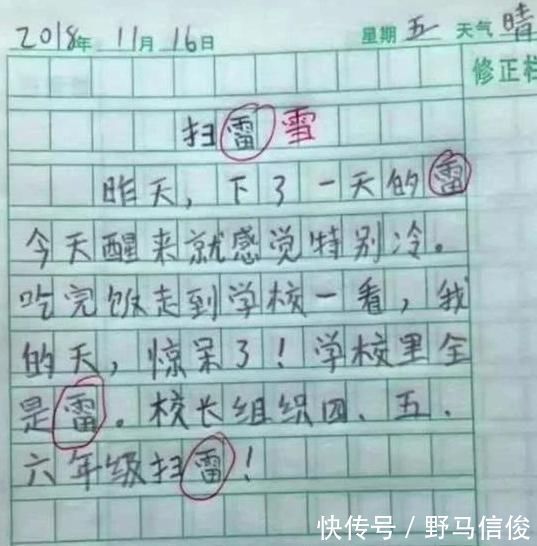 2018年 11月 16日 星期 五 天气 晴
修正栏
扫雷 雪
昨天，下了一天的雷
今天醒来就感觉特别冷。
吃完饭走到学校一看，我
的天，惊呆了！学校里全
是雷。校长组织四、五、
六年级扫雷！
快传号 / 野马信俊